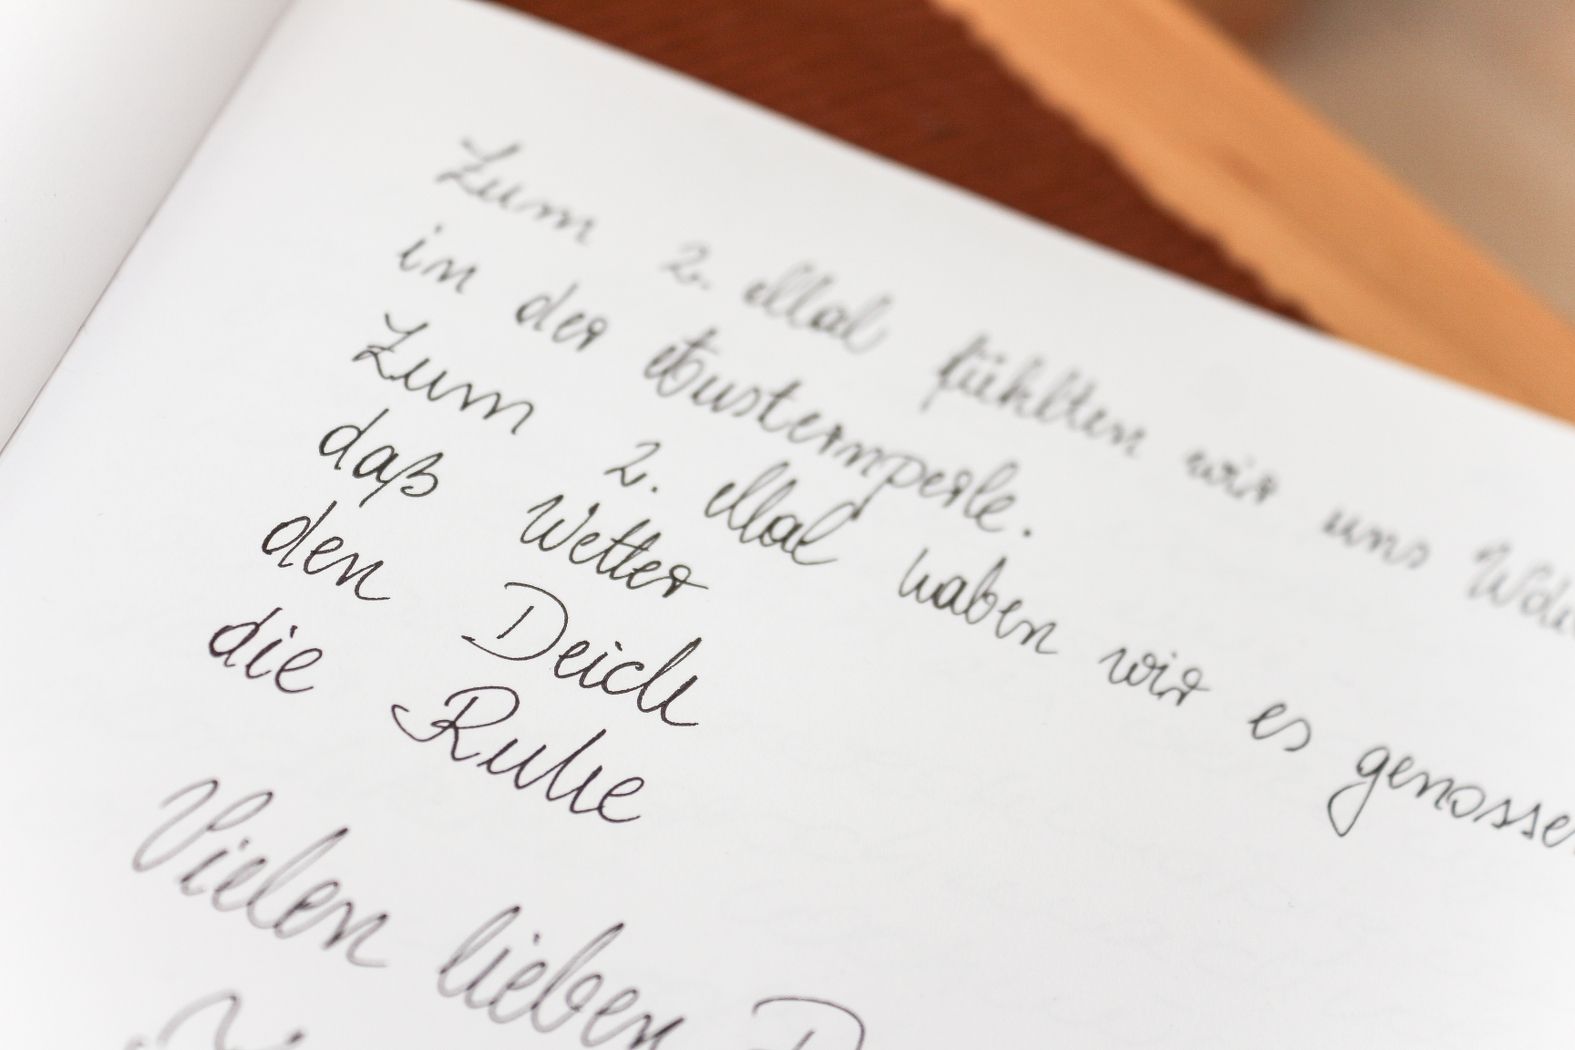 Zum 2. Mal fühlten wir uns
in der Austernperle.
Zum 2. Mal haben wir es genossen
daß Wetter
den Deich
die Ruhe
Vielen lieben